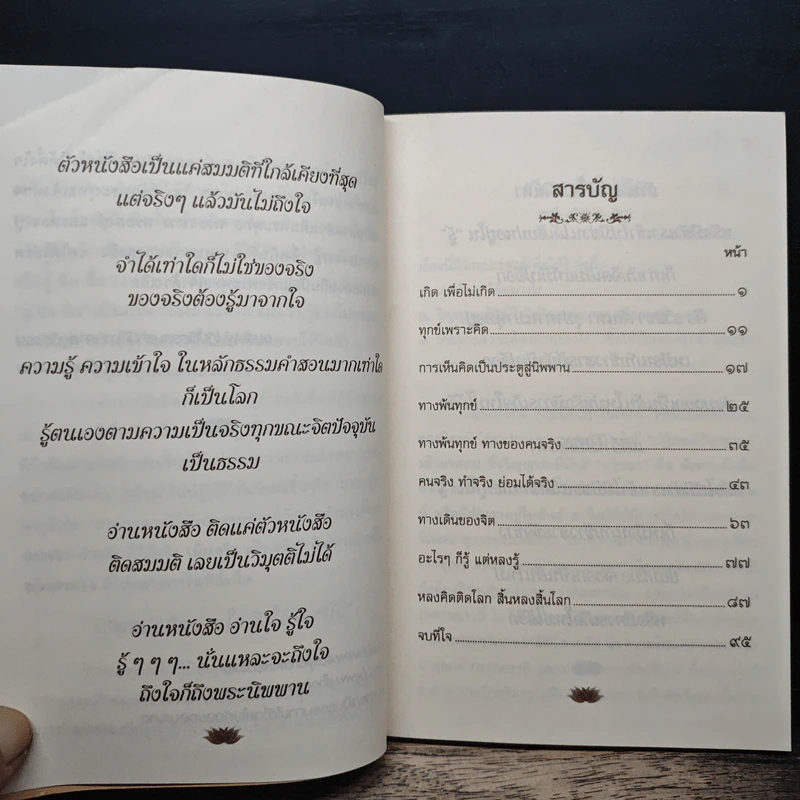 ตัวหนังสือเป็นแค่สมมติที่ใกล้เคียงที่สุด
แต่จริงๆ แล้วมันไม่ถึงใจ
จำได้เท่าใดก็ไม่ใช่ของจริง
ของจริงต้องรู้มาจากใจ
ความรู้ ความเข้าใจ ในหลักธรรมคำสอนมากเท่าใด
ก็เป็นโลก
รู้ตนเองตามความเป็นจริงทุกขณะจิตปัจจุบัน
เป็นธรรม
อ่านหนังสือ ติดแค่ตัวหนังสือ
ติดสมมติ เลยเป็นวิมุตติไม่ได้
อ่านหนังสือ อ่านใจ รู้ใจ
รู้ ๆ ๆ ๆ... นั่นแหละจะถึงใจ
ถึงใจก็ถึงพระนิพพาน
สารบัญ
หน้า
เกิด เพื่อไม่เกิด ๑
ทุกข์เพราะคิด ๑๑
การเห็นคิดเป็นประตูสู่นิพพาน ๑๗
ทางพ้นทุกข์ ๒๕
ทางพ้นทุกข์ ทางของคนจริง ๓๕
คนจริง ทำจริง ย่อมได้จริง ๔๓
ทางเดินของจิต ๖๓
อะไรๆ ก็รู้ แต่หลงรู้ ๗๗
หลงคิดติดโลก สิ้นหลงสิ้นโลก ๘๗
จบที่ใจ ๙๕